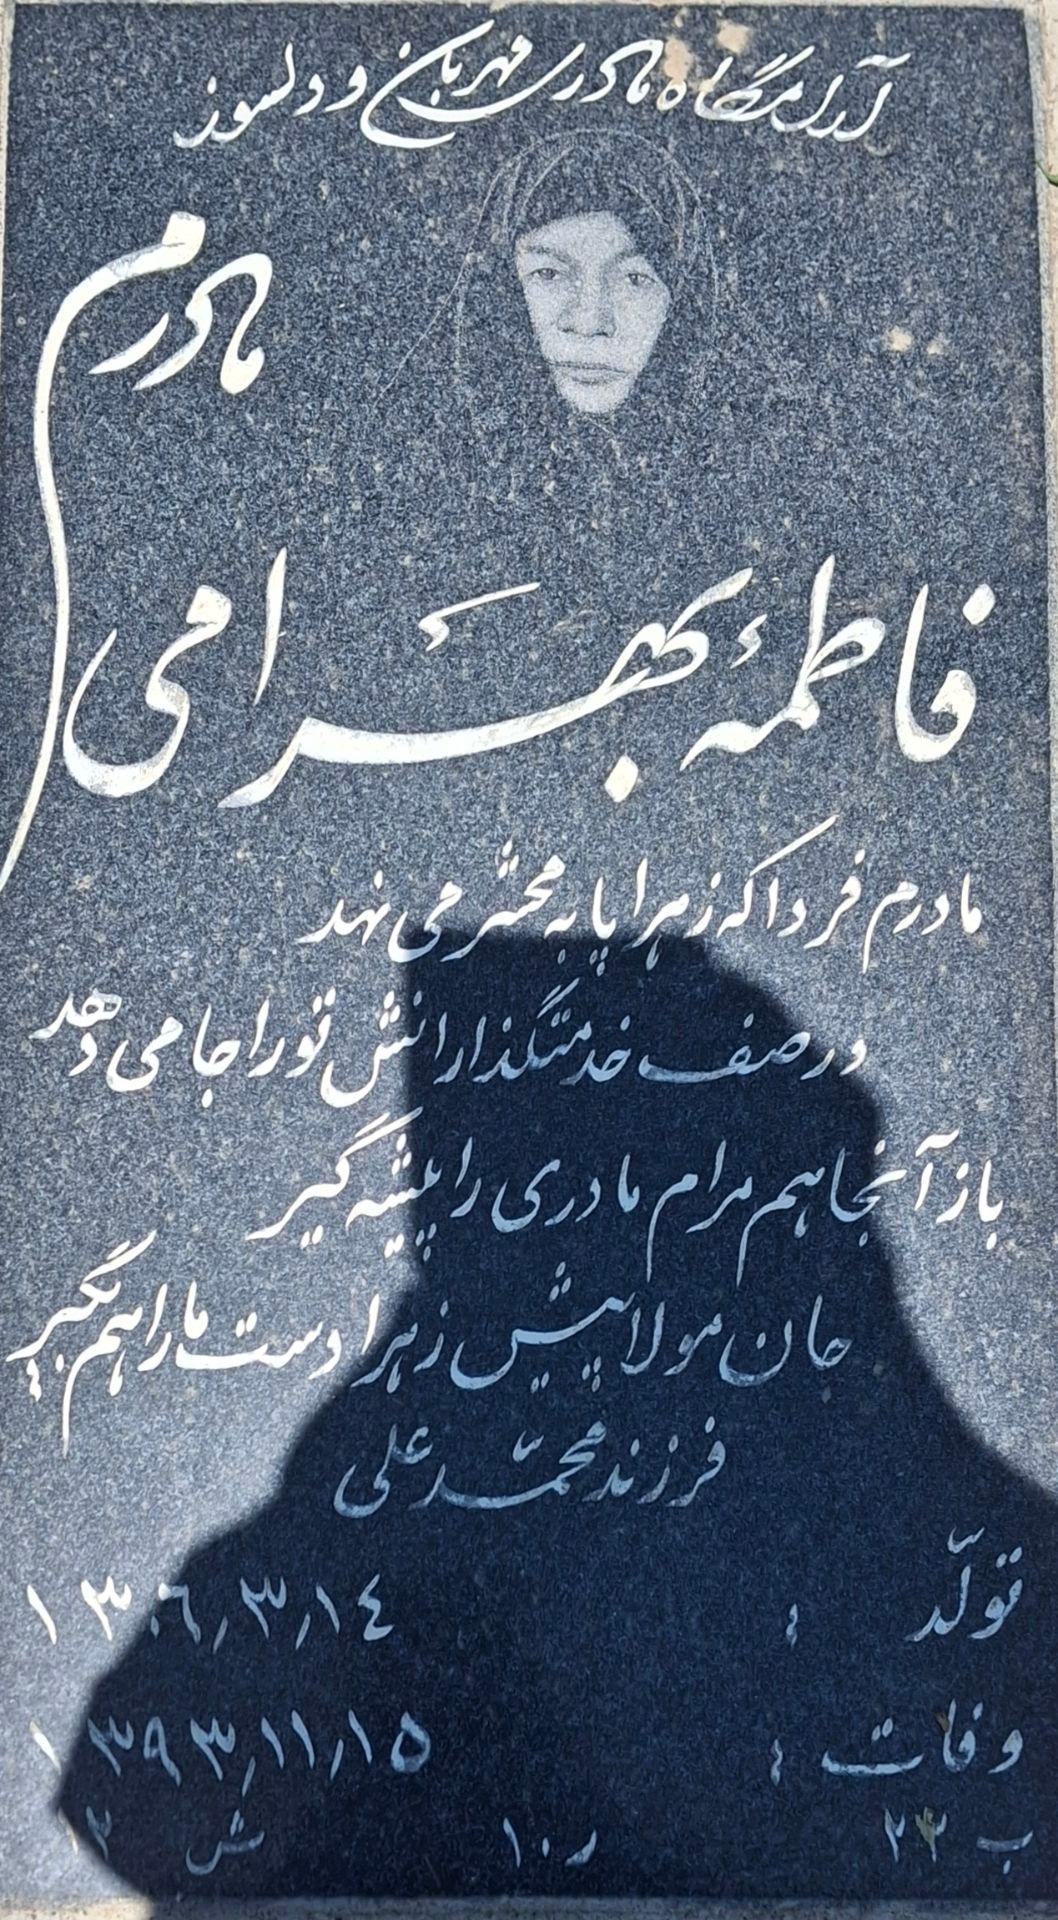 آرامگاه مادری مهربان و دلسوز
مادرم
فاطمه بهرامی
مادرم فردا که زهرا پا به محشر می نهد
در صف خدمتگذارانش تو را جا می دهد
باز آنجا هم مرام مادری را پیشه گیر
جان مولا پیش زهرا دست ما را هم بگیر
فرزند محمّد علی
تولّد : ۱۳۰۶٫۳٫۱٤
وفات : ۱۳۹۳٫۱۱٫۱۵
ب ۲۲ ر ۱۰ ش ۱۲